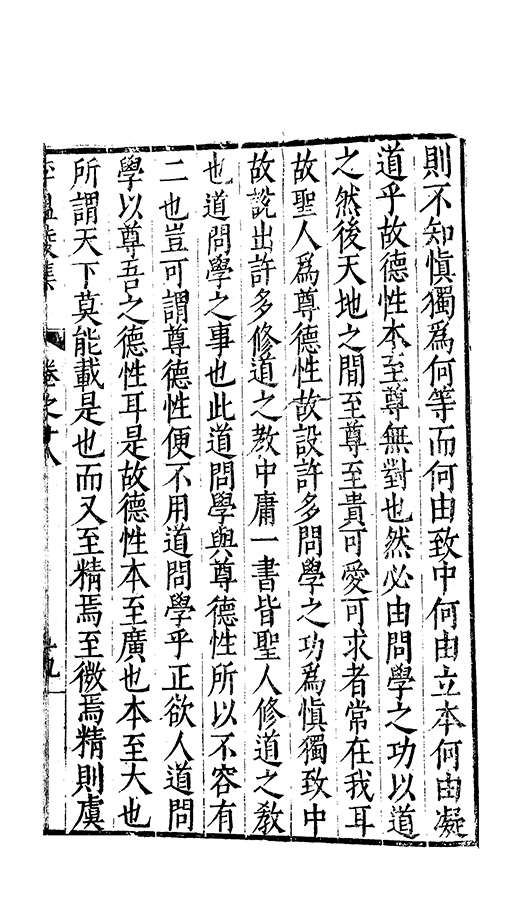 則不知愼獨爲何等而何由致中何由立本何由凝
道乎故德性本至尊無對也然必由問學之功以道
之然後天地之間至尊至貴可愛可求者常在我耳
故聖人爲尊德性故設許多問學之功爲愼獨致中
故說出許多修道之教中庸一書皆聖人修道之教
也道問學之事也此道問學與尊德性所以不容有
二也豈可謂尊德性便不用道問學乎正欲人道問
學以尊吾之德性耳是故德性本至廣也本至大也
所謂天下莫能載是也而又至精焉至微焉精則虞
李溫陵集 卷之十八 十九